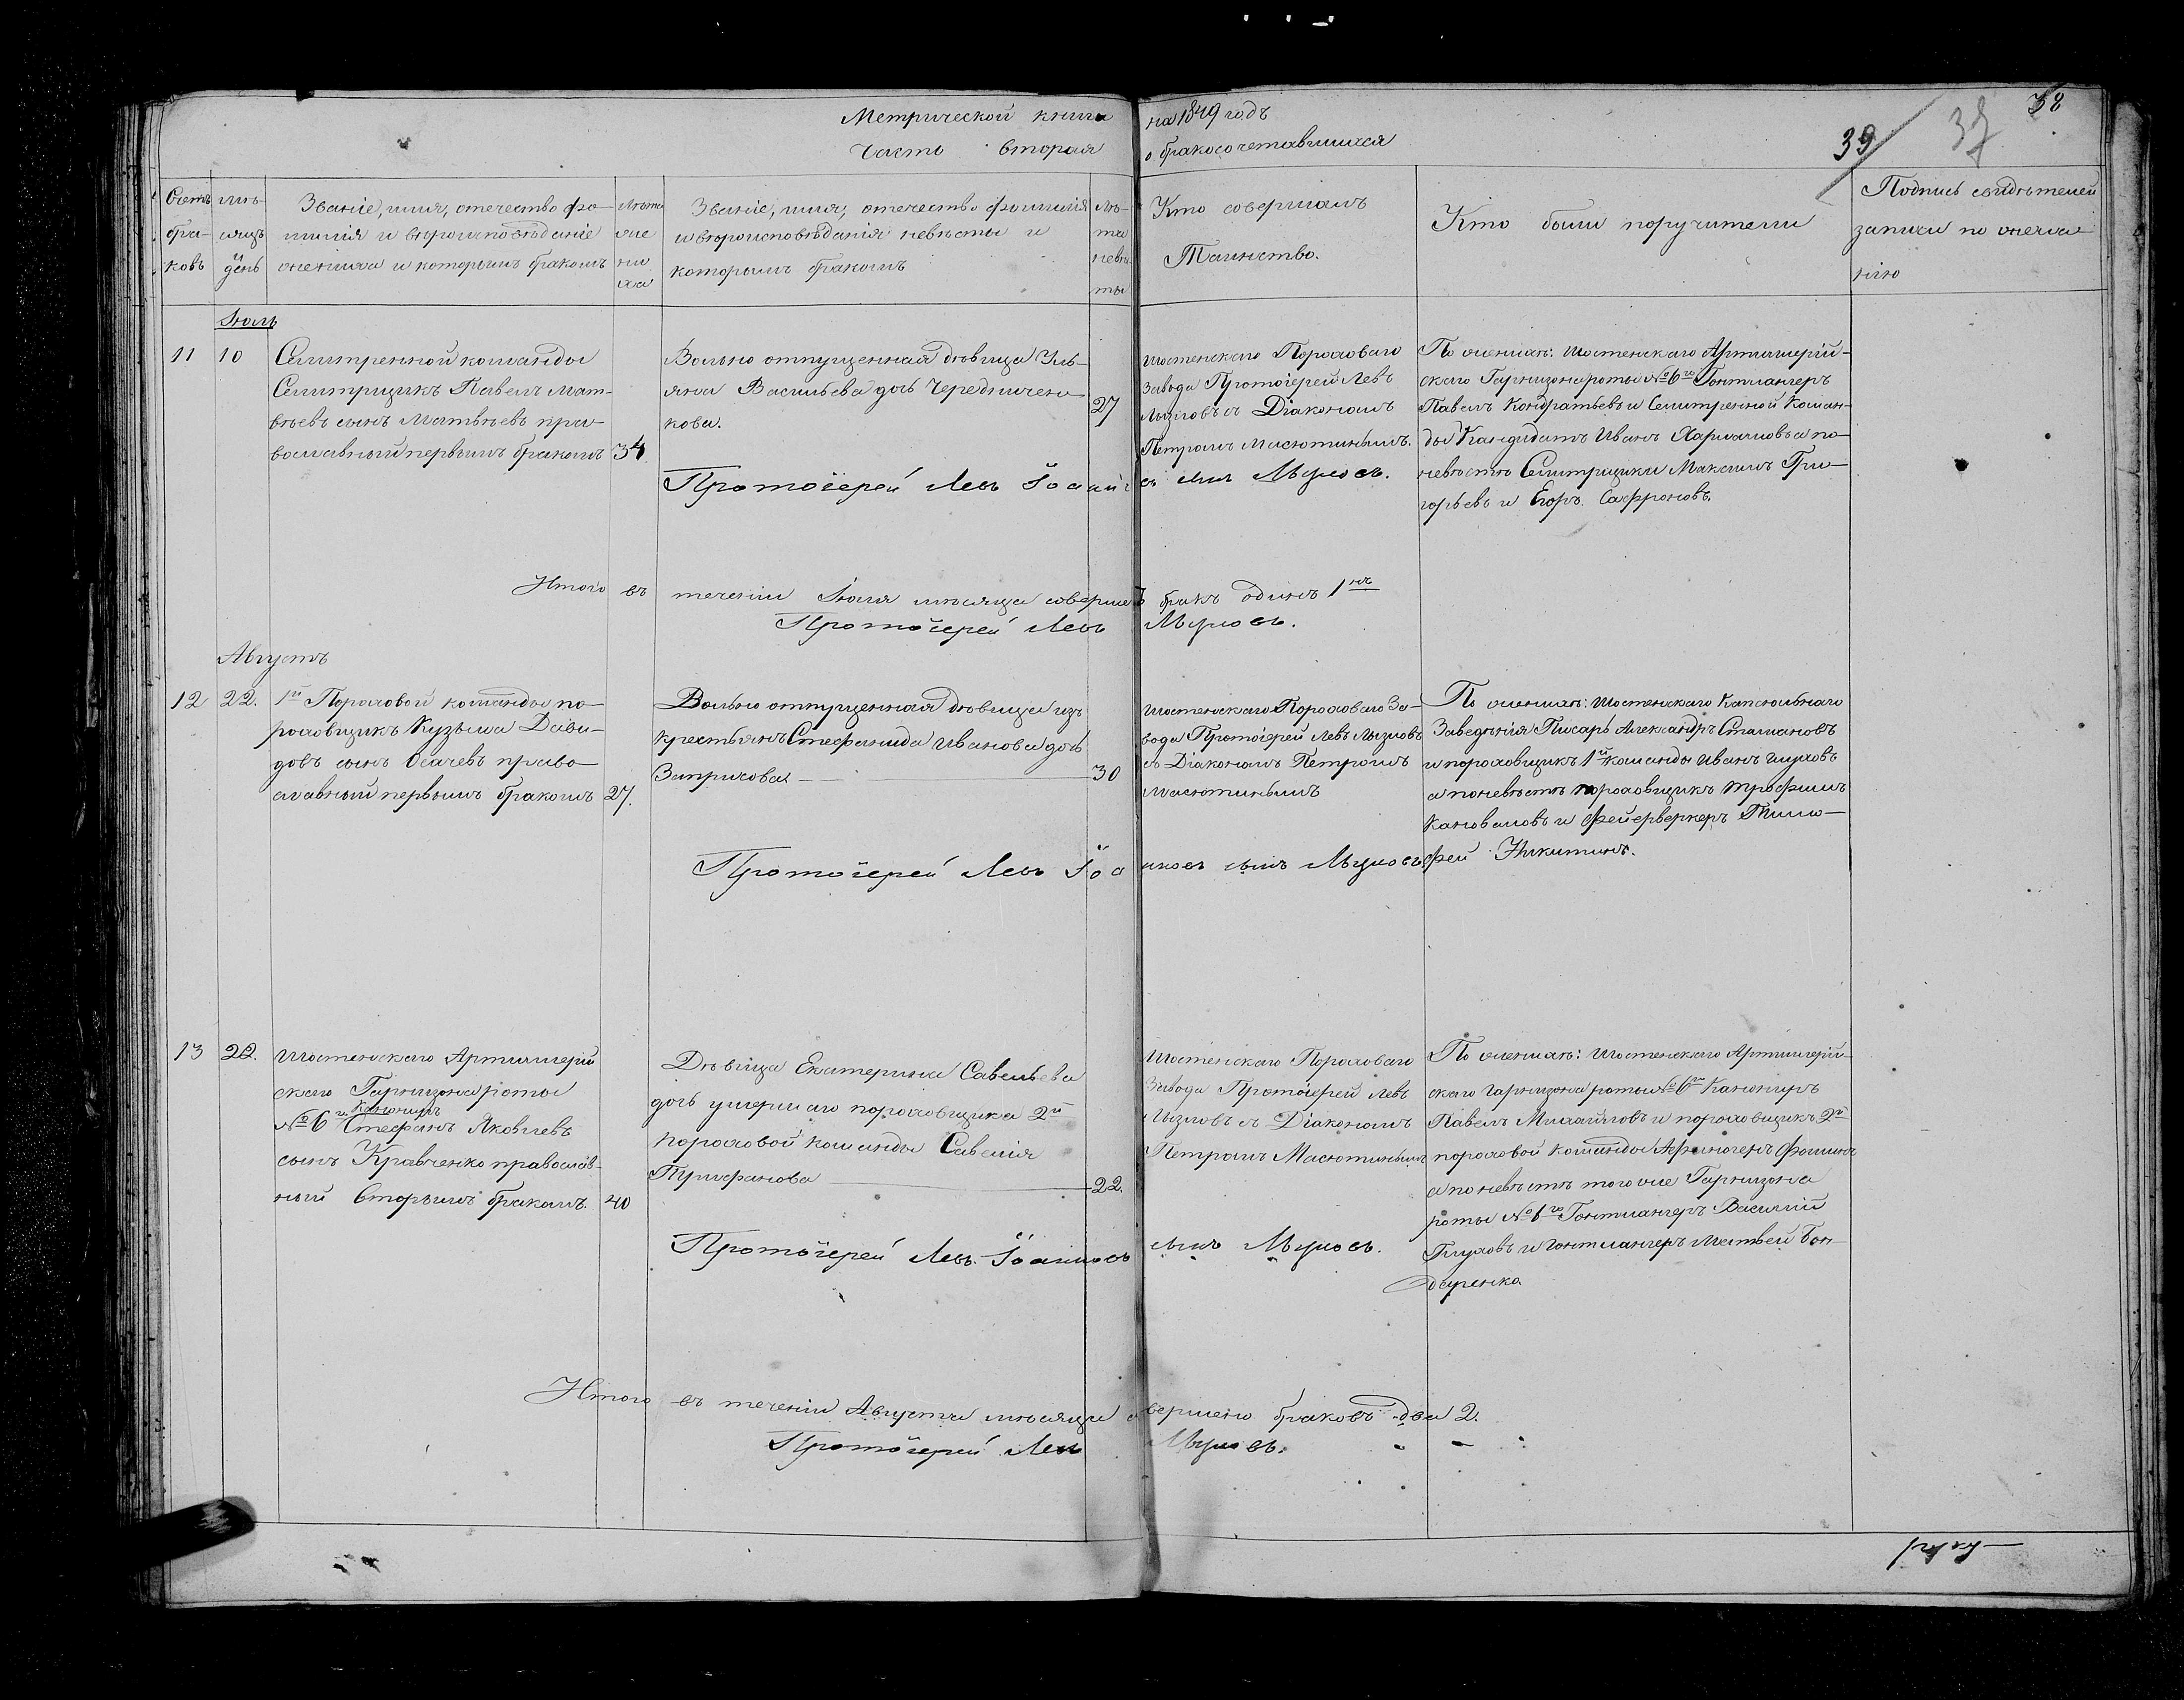 Метрической книги на 1849 годъ
Часть вторая о бракосочетавшихся
39 37 38
Счетъ бра-ковъ
мѣ-сяцъ день
Званіе, имя, отечество фа-
милія и вѣроисповѣданіе
жениха и которымъ бракомъ
Лѣта же ни ха
Званіе, имя, отечество фамилія
и вѣроисповѣданія невѣсты и
которымъ бракомъ
лѣ-та невѣ-ты
Кто совершалъ
Таинство.
Кто были поручители
Подпись свидѣтелей
записи по жела
нію
Іюль
11 10
Селитренной команды
Селитрщикъ Павелъ Мат-
вѣевъ сынъ Матвѣевъ пра-
вославный первымъ бракомъ 34
Вольно отпущенная дѣвица Уль-
яна Васильева дочь Чередничен-
кова. 27
Шостенскаго Пороховаго
Завода Протоіерей Левъ
Мызловъ съ Діакономъ
Петромъ Масютинымъ.
По женихѣ: Шостенскаго Артиллерій-
скаго Гарнизона роты №6го Гонтлангеръ
Павелъ Кондратьевъ и Селитренной Коман-
ды Кандидатъ Иванъ Харламовъ а по
невѣстѣ Селитрщики Максимъ Гри-
горьевъ и Егоръ Сафроновъ.
Протоіерей Левъ Іоанновъ сынъ Мызловъ.
Итого въ теченіи Іюля мѣсяца соверше бракъ одинъ 1нъ
Протоіерей Левъ Мызловъ.
Августъ
12 22.
1й Пороховой команды по-
роховщикъ Кузьма Дави-
довъ сынъ Осачевъ право-
славный первымъ бракомъ 27.
Вольно отпущенная дѣвица изъ
крестьянъ Стефанида Иванова дочь
30
Шостенскаго Пороховаго За-
вода Протоіерей Левъ Мызловъ
съ Діакономъ Петромъ
Масютинымъ
По женихѣ: Шостенскаго Капсюльнаго
Заведѣнія Писарь Александръ Стамановъ
и пороховщикъ 1й команды Иванъ Шуховъ
а по невѣстѣ пороховщикъ Трофимъ
Кановаловъ и Фейерверкеръ Тимо-
фей Никитинъ.
Протоіерей Левъ Іоанновъ сынъ Мызловъ
13 22.
Шостенскаго Артиллерій
скаго Гарнизона роты
№6го Канониръ Стефанъ Яковлевъ
сынъ Кравченко православ-
ный Вторымъ бракомъ. 40
Дѣвица Екатерина Савельева
дочь умершаго пороховщика 2й
пороховой команды Савелія
22.
Шостенскаго Пороховаго
Завода Протоіерей Левъ
Мызловъ съ Діакономъ
Петромъ Масютинымъ
По женихѣ: Шостенскаго Артиллерій-
скаго Гарнизона роты №6го Канониръ
Павелъ Михайловъ и пороховщикъ 2й
пороховой команды Афиногенъ Фоминъ
а по невѣстѣ того же Гарнизона
роты №6го Гонтлангеръ Василій
Глуховъ и Гонтлангеръ Матвей Бон-
даренко
Протоіерей Левъ Іоанновъ сынъ Мызловъ.
Итого въ теченіи Августа мѣсяца совершено браковъ два 2.
Протоіерей Левъ Мызловъ.